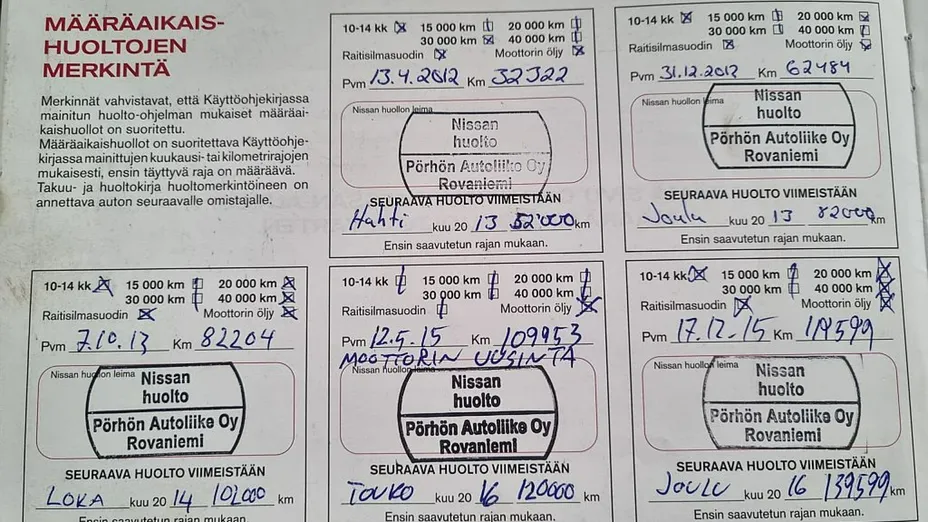 MÄÄRÄAIKAIS-
HUOLTOJEN
MERKINTÄ
Merkinnät vahvistavat, että Käyttöohjekirjassa
mainitun huolto-ohjelman mukaiset määräai-
kaishuollot on suoritettu.
Määräaikaishuollot on suoritettava Käyttöohje-
kirjassa mainittujen kuukausi- tai kilometrirajojen
mukaisesti, ensin täyttyvä raja on määräävä.
Takuu- ja huoltokirja huoltomerkintöineen on
annettava auton seuraavalle omistajalle.
10-14 kk 15 000 km 20 000 km
30 000 km 40 000 km
Raitisilmasuodin Moottorin öljy
Pvm 13.4.2012 Km 32322
Nissan huollon leima
Nissan
huolto
Pörhön Autoliike Oy
Rovaniemi
SEURAAVA HUOLTO VIIMEISTÄÄN
Huhti kuu 20 13 52000 km
Ensin saavutetun rajan mukaan.
10-14 kk 15 000 km 20 000 km
30 000 km 40 000 km
Raitisilmasuodin Moottorin öljy
Pvm 31.12.2012 Km 62484
Nissan huollon leima
Nissan
huolto
Pörhön Autoliike Oy
Rovaniemi
SEURAAVA HUOLTO VIIMEISTÄÄN
Joulu kuu 20 13 82000 km
Ensin saavutetun rajan mukaan.
10-14 kk 15 000 km 20 000 km
30 000 km 40 000 km
Raitisilmasuodin Moottorin öljy
Pvm 7.10.13 Km 82204
Nissan huollon leima
Nissan
huolto
Pörhön Autoliike Oy
Rovaniemi
SEURAAVA HUOLTO VIIMEISTÄÄN
LOKA kuu 20 14 102000 km
Ensin saavutetun rajan mukaan.
10-14 kk 15 000 km 20 000 km
30 000 km 40 000 km
Raitisilmasuodin Moottorin öljy
Pvm 12.5.15 Km 109953
MOOTTORIN UUSINTA
Nissan huollon leima
Nissan
huolto
Pörhön Autoliike Oy
Rovaniemi
SEURAAVA HUOLTO VIIMEISTÄÄN
TOUKO kuu 20 16 120000 km
Ensin saavutetun rajan mukaan.
10-14 kk 15 000 km 20 000 km
30 000 km 40 000 km
Raitisilmasuodin Moottorin öljy
Pvm 17.12.15 Km 119599
Nissan huollon leima
Nissan
huolto
Pörhön Autoliike Oy
Rovaniemi
SEURAAVA HUOLTO VIIMEISTÄÄN
JOULU kuu 20 16 139599 km
Ensin saavutetun rajan mukaan.